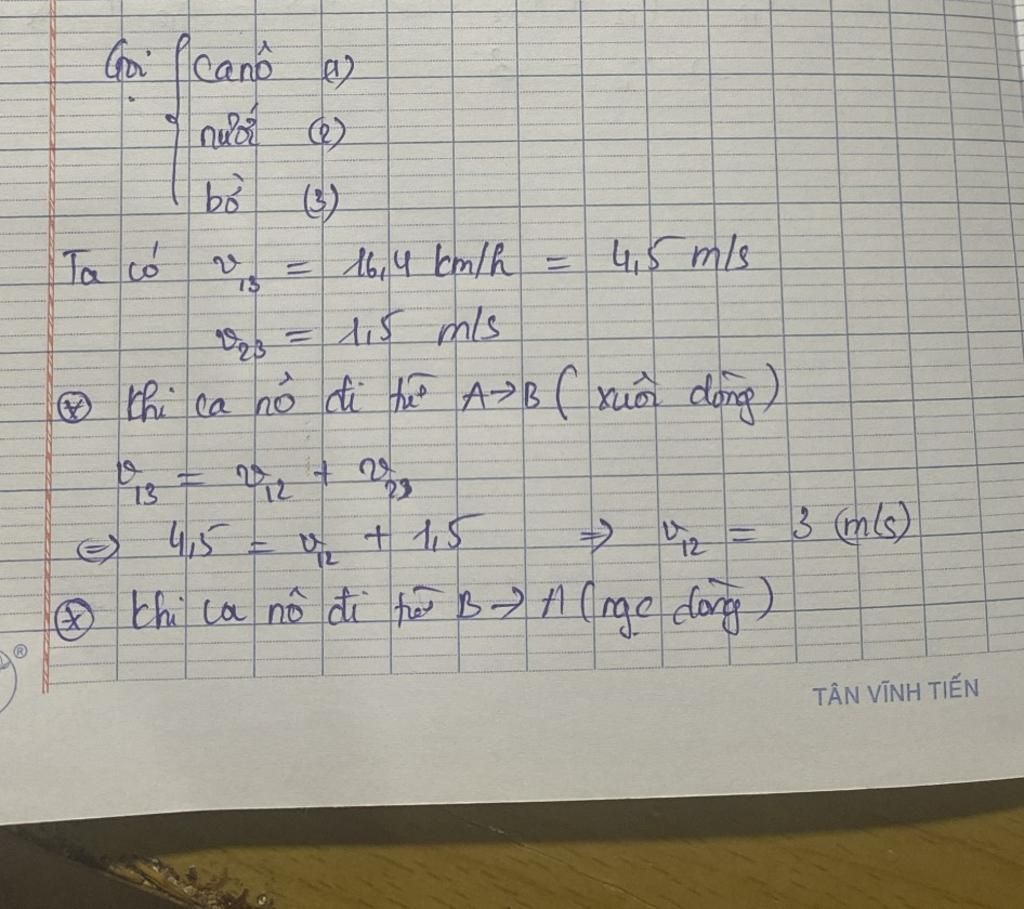 Gọi { canô (1)
nước (2)
bờ (3)
Ta có v₁₃ = 16,4 km/h = 4,5 m/s
v₂₃ = 1,5 m/s
⊛ Khi ca nô đi từ A→B (xuôi dòng)
v₁₃ = v₁₂ + v₂₃
⇔ 4,5 = v₁₂ + 1,5 ⇒ v₁₂ = 3 (m/s)
⊛ Khi ca nô đi từ B→A (ngc dòng)
®
TÂN VĨNH TIẾN